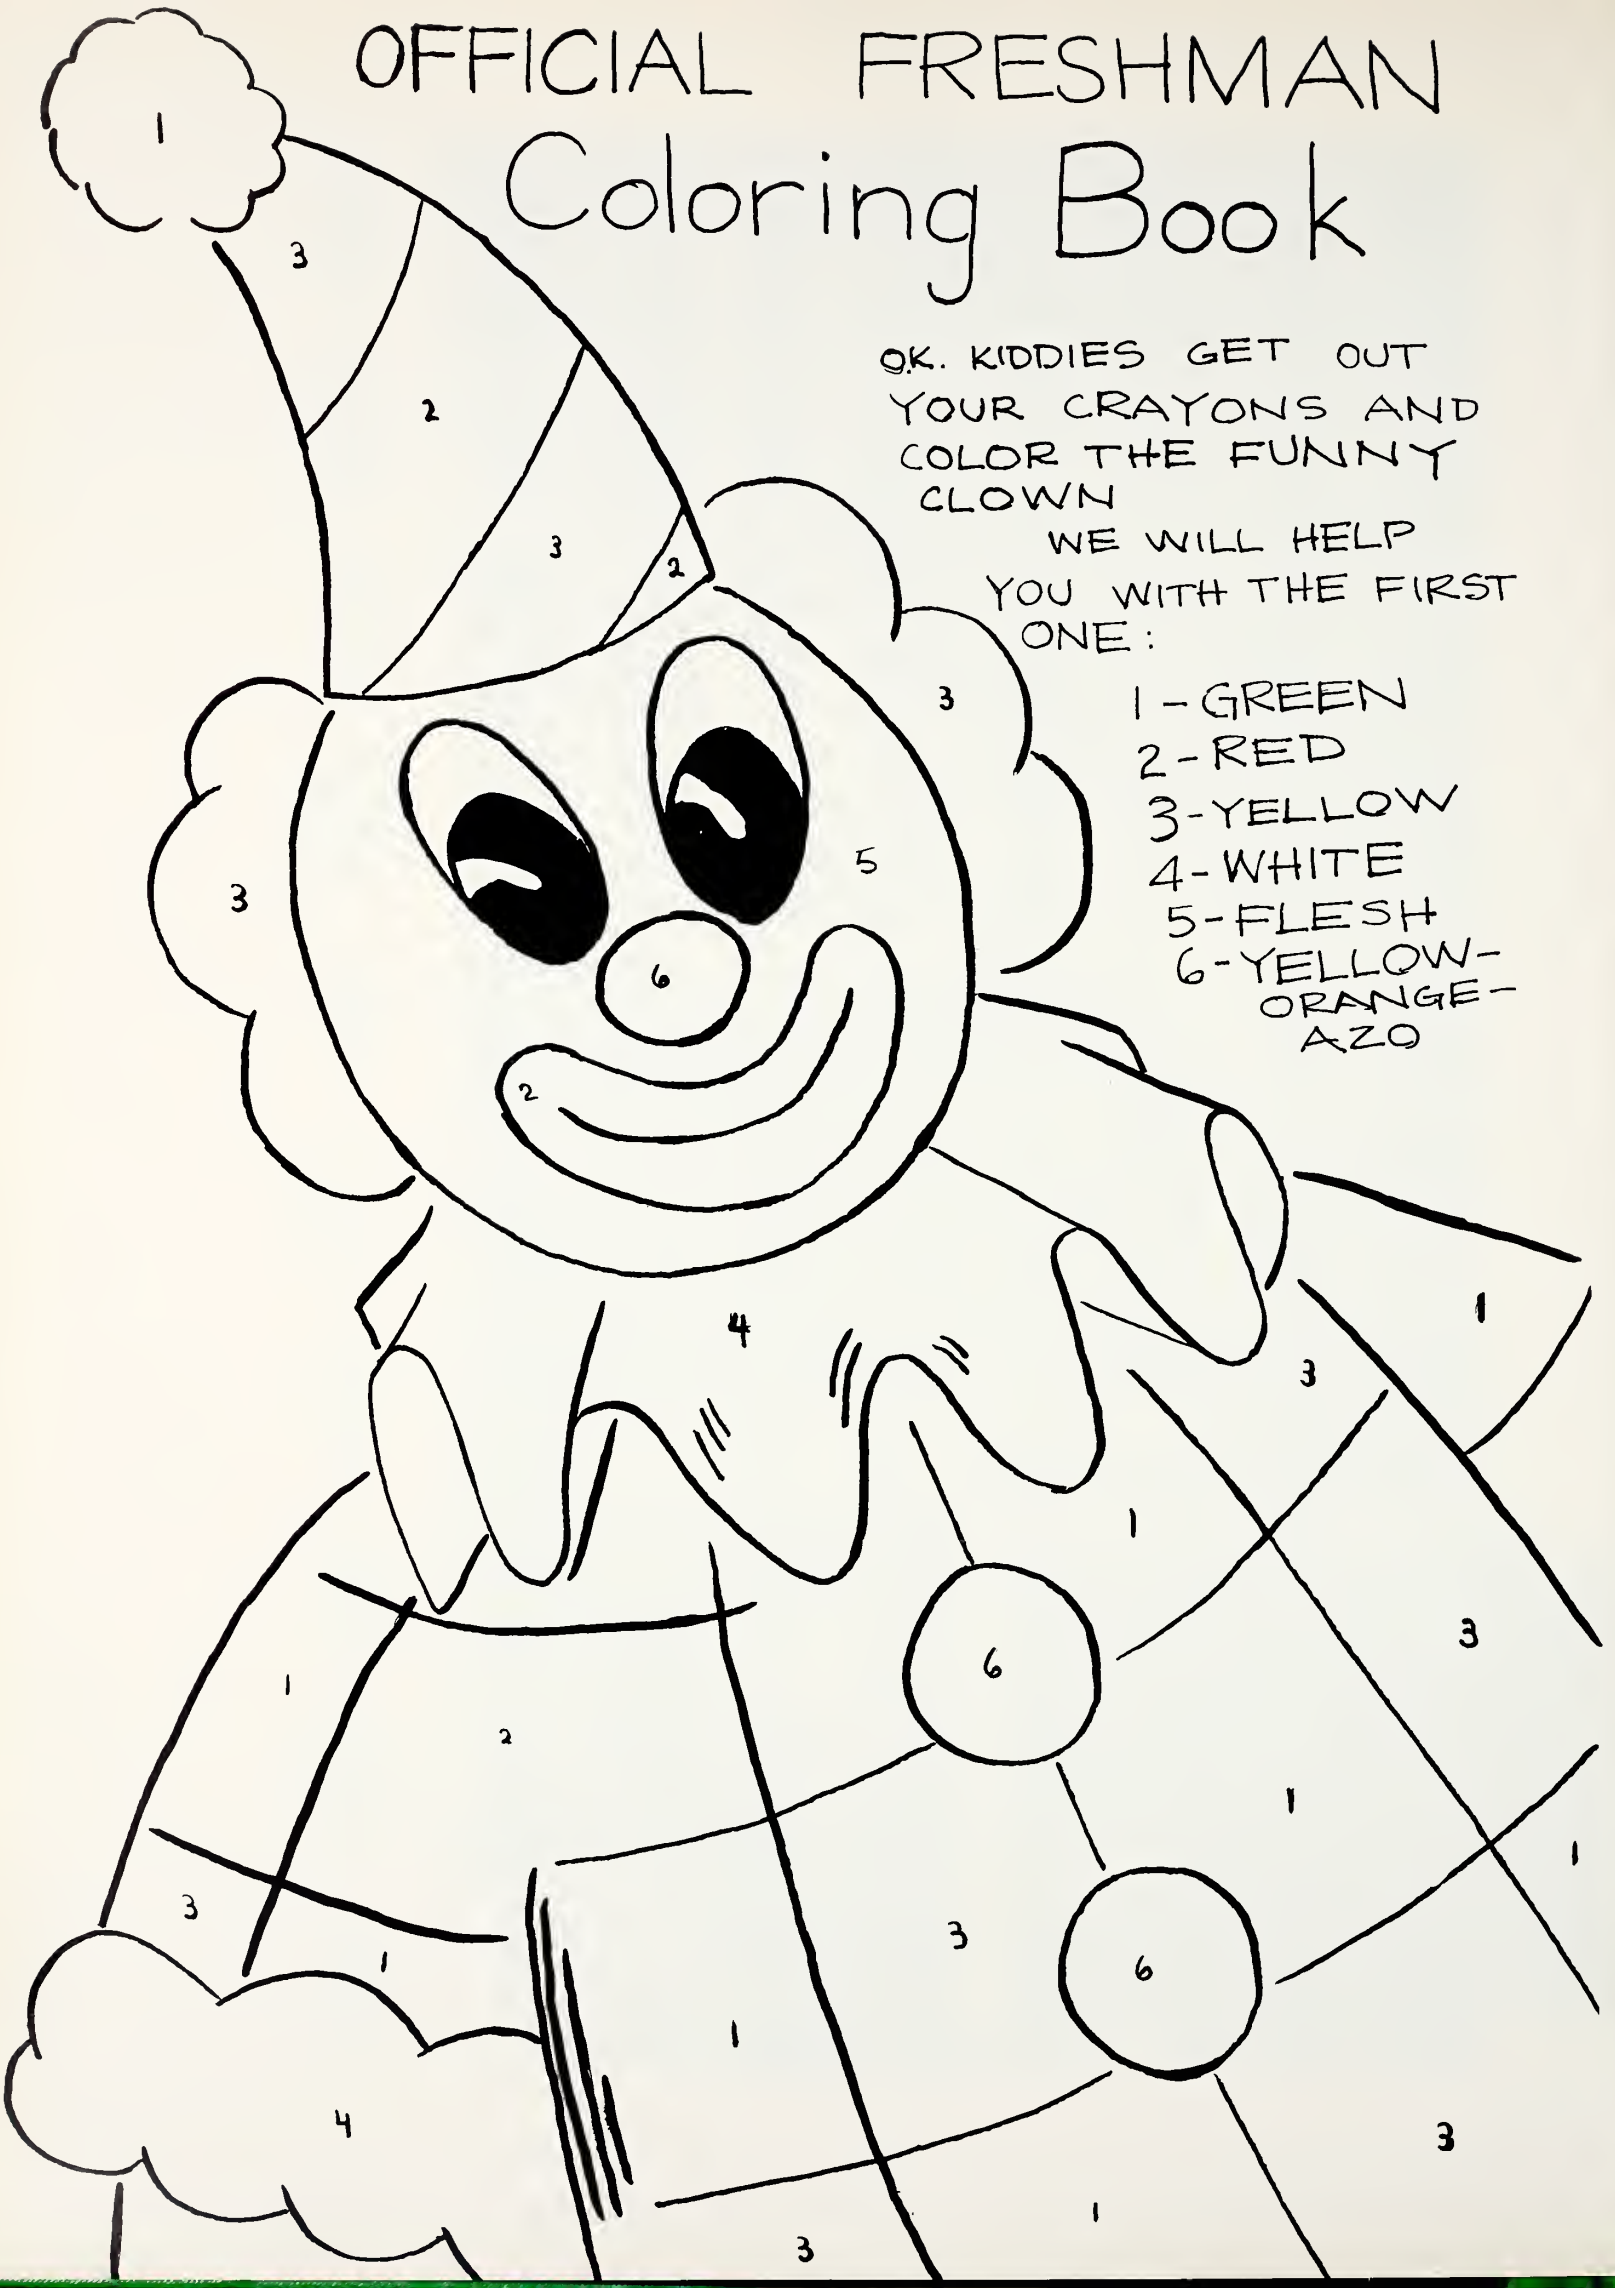 OFFICIAL FRESHMAN
Coloring Book
O.K. KIDDIES GET OUT
YOUR CRAYONS AND
COLOR THE FUNNY
CLOWN
WE WILL HELP
YOU WITH THE FIRST
ONE:
1-GREEN
2-RED
3-YELLOW
4-WHITE
5-FLESH
6-YELLOW-
ORANGE-
AZO
1
3
2
3
2
3
5
3
6
2
4
1
3
1
3
6
1
2
1
1
3
3
6
1
1
4
3
1
3